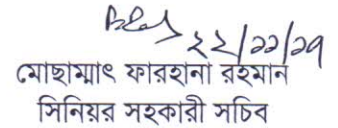 ২২/১১/১৭
মোছাম্মাৎ ফারহানা রহমান
সিনিয়র সহকারী সচিব